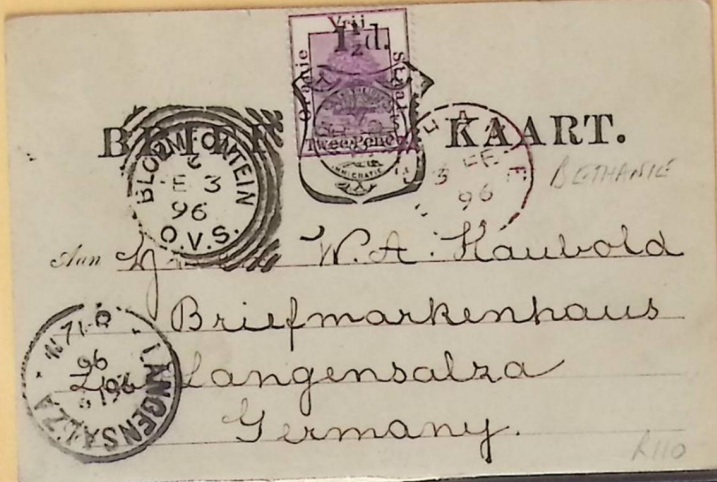 Vrij
1½d.
Oranje
Staat
Twee Pence
BRIEF KAART.
IMMIGRATIE
BLOEMFONTEIN
2
FE 3
96
O.V.S.
3 FE
96
BETHANIE
Aan
W. A. Haubold
Briefmarkenhaus
Langensalza
Germany.
LANGENSALZA
96
R110